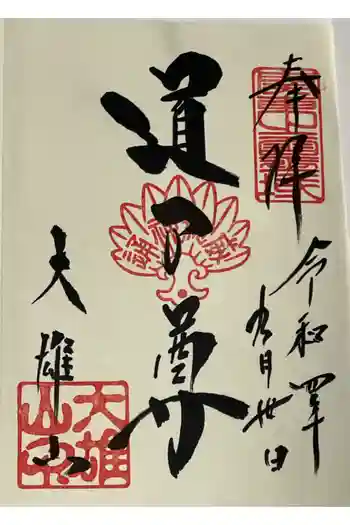 奉拝
令和四年
九月卅日
道了尊
大雄山
大雄山印